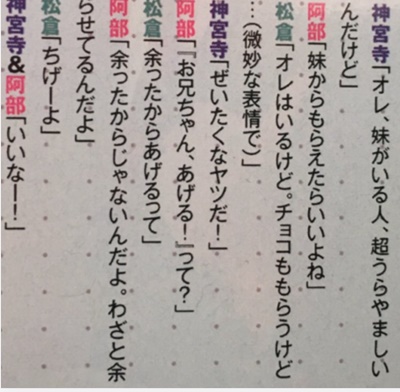 神宮寺「オレ、妹がいる人、超うらやましい
んだけど」
阿部「妹からもらえたらいいよね」
松倉「オレはいるけど。チョコももらうけど
…(微妙な表情で)」
神宮寺「ぜいたくなヤツだ!」
阿部「『お兄ちゃん、あげる!』って?」
松倉「余ったからあげるって」
阿部「余ったからじゃないんだよ。わざと余
らせてるんだよ」
松倉「ちげーよ」
神宮寺&阿部「いいなー!」